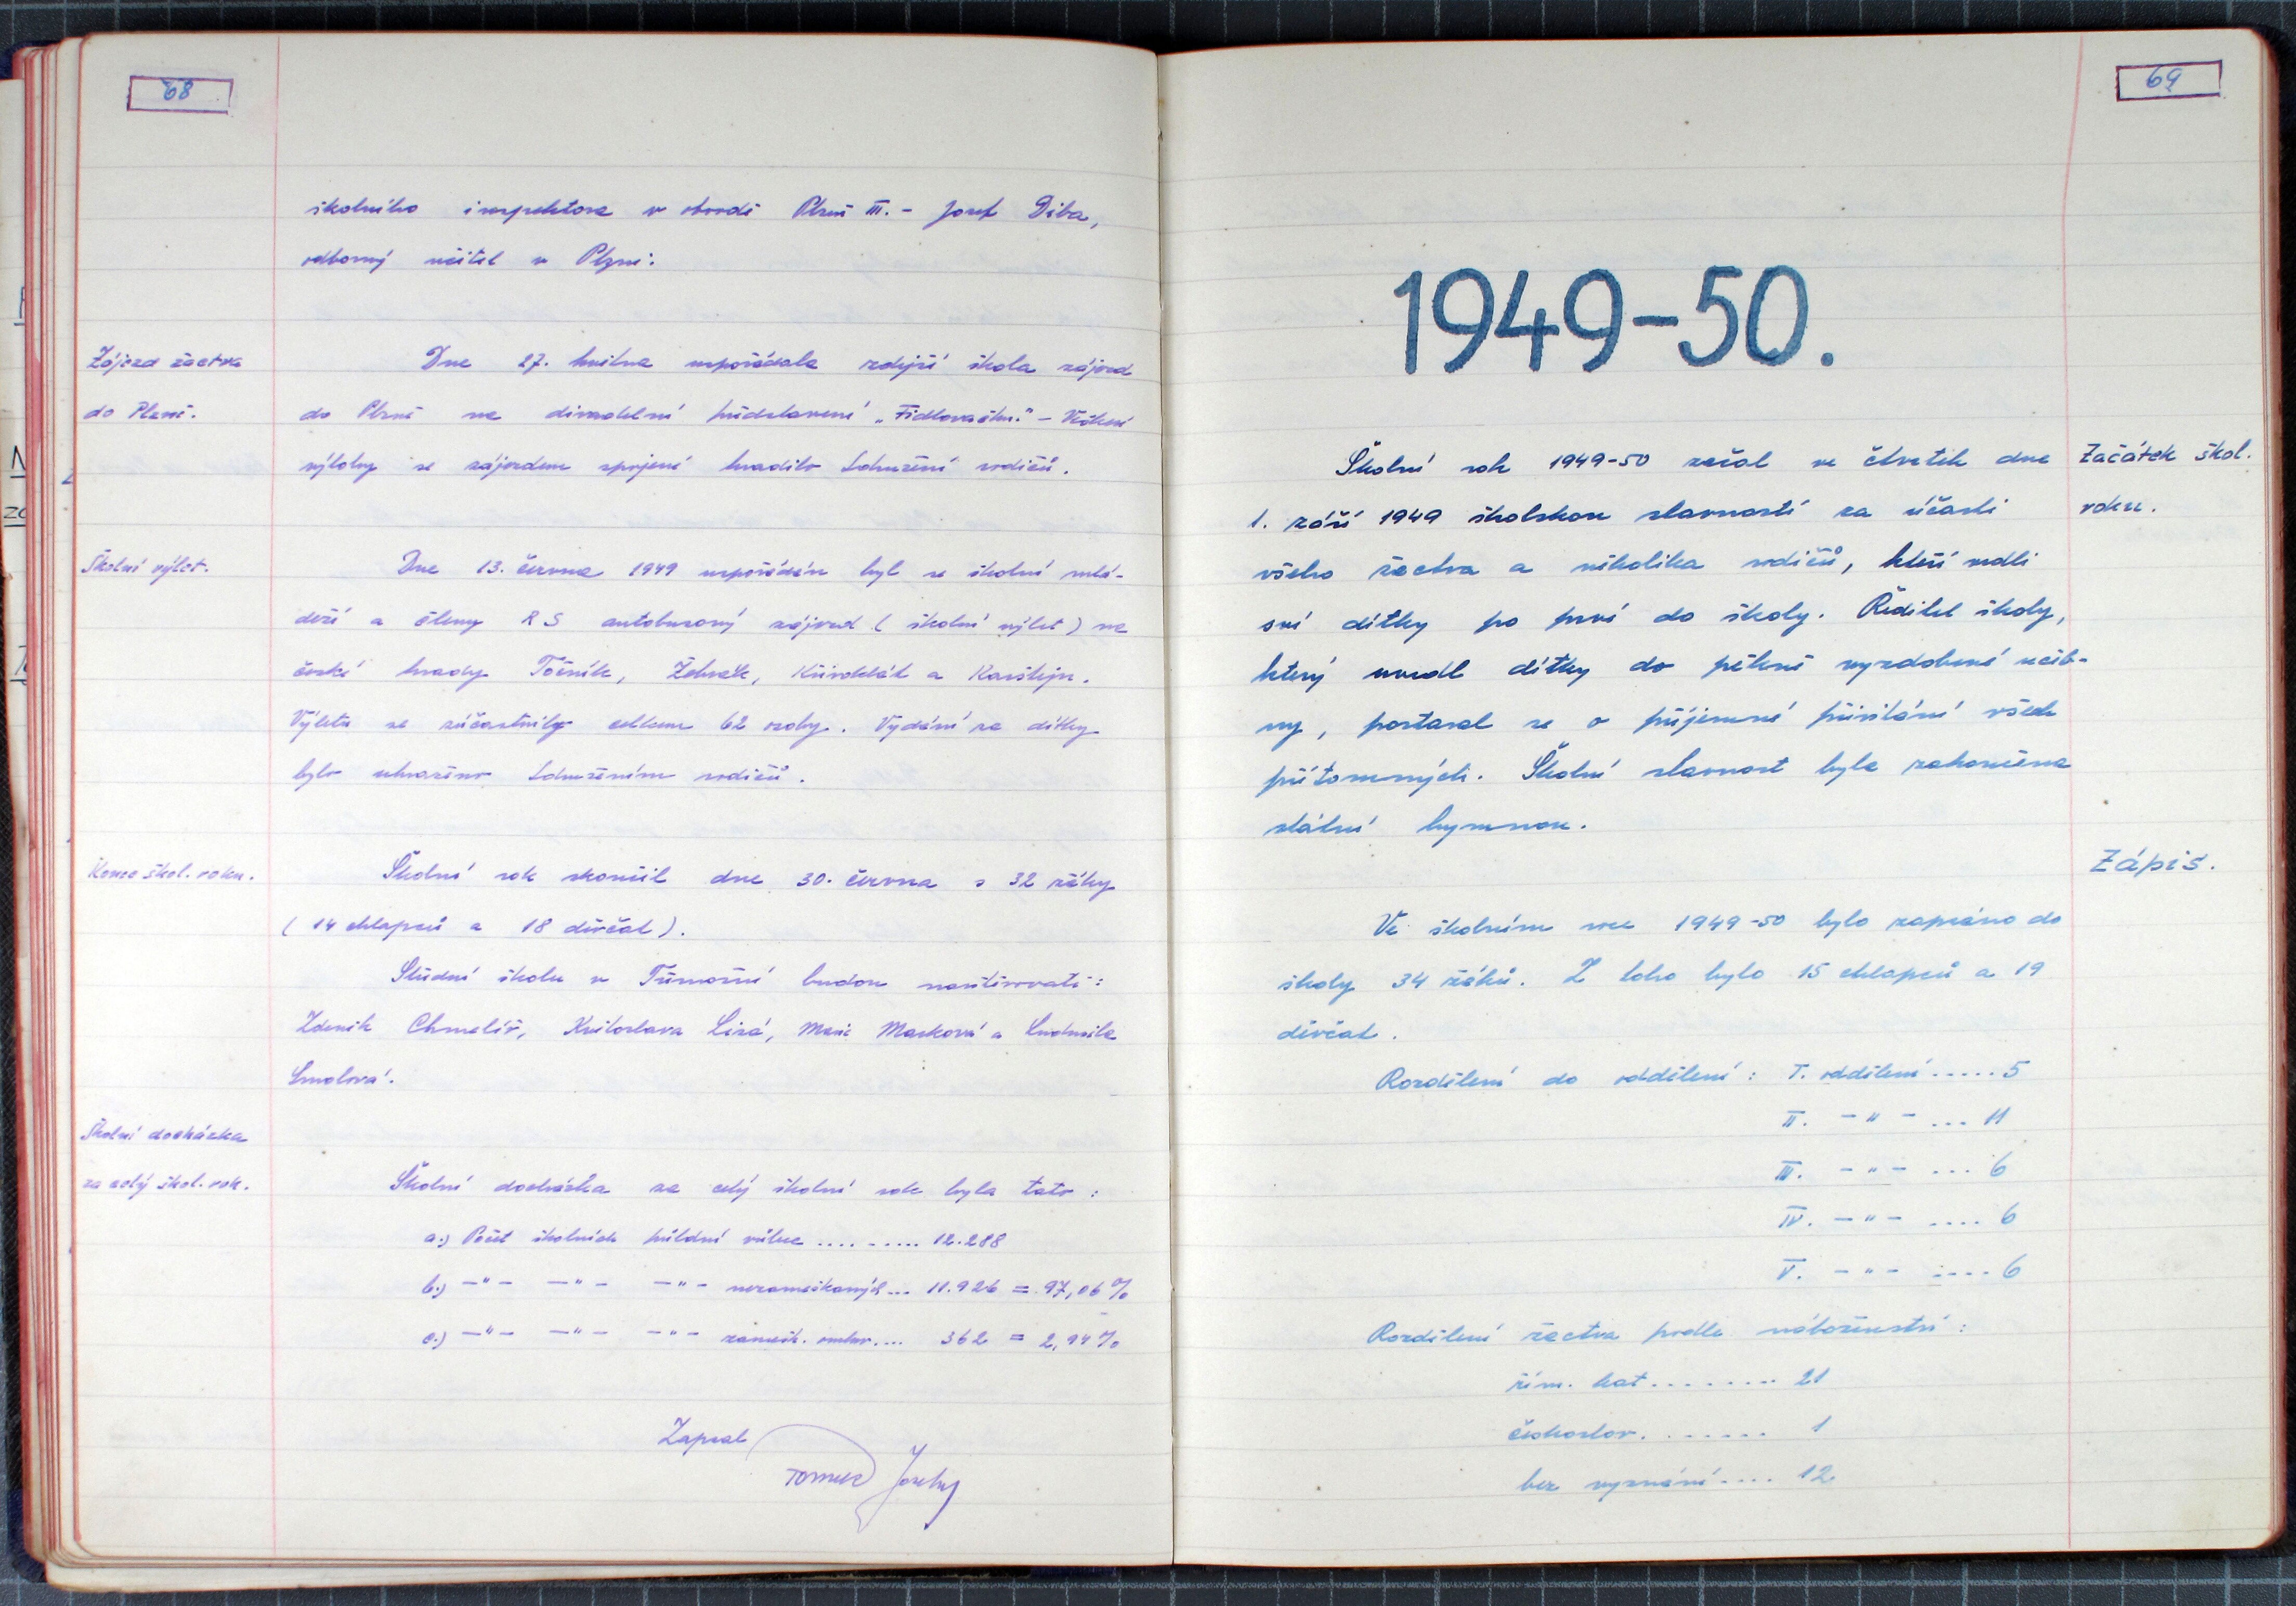 68
školního inspektora v obvodě Plzeň III. - Josef Diba,
odborný učitel v Plzni.
Zájezd žactva
do Plzně.
Dne 27. května uspořádala zdejší škola zájezd
do Plzně na divadelní představení „Fidlovačka." - Veškeré
výlohy se zájezdem spojené hradilo Sdružení rodičů.
Školní výlet.
Dne 13. června 1949 uspořádán byl se školní mlá-
deží a členy RS autobusový zájezd ( školní výlet ) na
české hrady Točník, Žebrák, Křivoklát a Karštejn.
Výletu se zúčastnily celkem 62 osoby. Vydání za dítky
bylo uhrazeno Sdružením rodičů.
Konec škol. roku.
Školní rok skončil dne 30. června s 32 žáky
( 14 chlapců a 18 děvčat ).
Střední školu v Třemošné budou navštěvovati:
Zdeněk Chmelíř, Květoslava Lisá, Marie Marková a Ludmila
Smolová.
Školní docházka
za celý škol. rok.
Školní docházka za celý školní rok byla tato:
a.) Počet školních půldnů vůbec .......... 12.288
b.) -"- -"- -"- nezameškaných... 11.926 = 97,06 %
c.) -"- -"- -"- zamešk. omluv.... 362 = 2,94 %
Zapsal
Tomek Josef
69
1949-50.
Začátek škol.
roku.
Školní rok 1949-50 začal ve čtvrtek dne
1. září 1949 školskou slavností za účasti
všeho žactva a několika rodičů, kteří vedli
své dítky po prvé do školy. Ředitel školy,
který uvedl dítky do pěkně vyzdobené učeb-
ny, postaral se o příjemné přivítání všech
přítomných. Školní slavnost byla zakončena
státní hymnou.
Zápis.
Ve školním roce 1949-50 bylo zapsáno do
školy 34 žáků. Z toho bylo 15 chlapců a 19
děvčat.
Rozdělení do oddělení: I. oddělení ..... 5
II. -"- .... 11
III. -"- .... 6
IV. -"- .... 6
V. -"- .... 6
Rozdělení žactva podle náboženství:
řím. kat........ 21
českoslov........ 1
bez vyznání.... 12